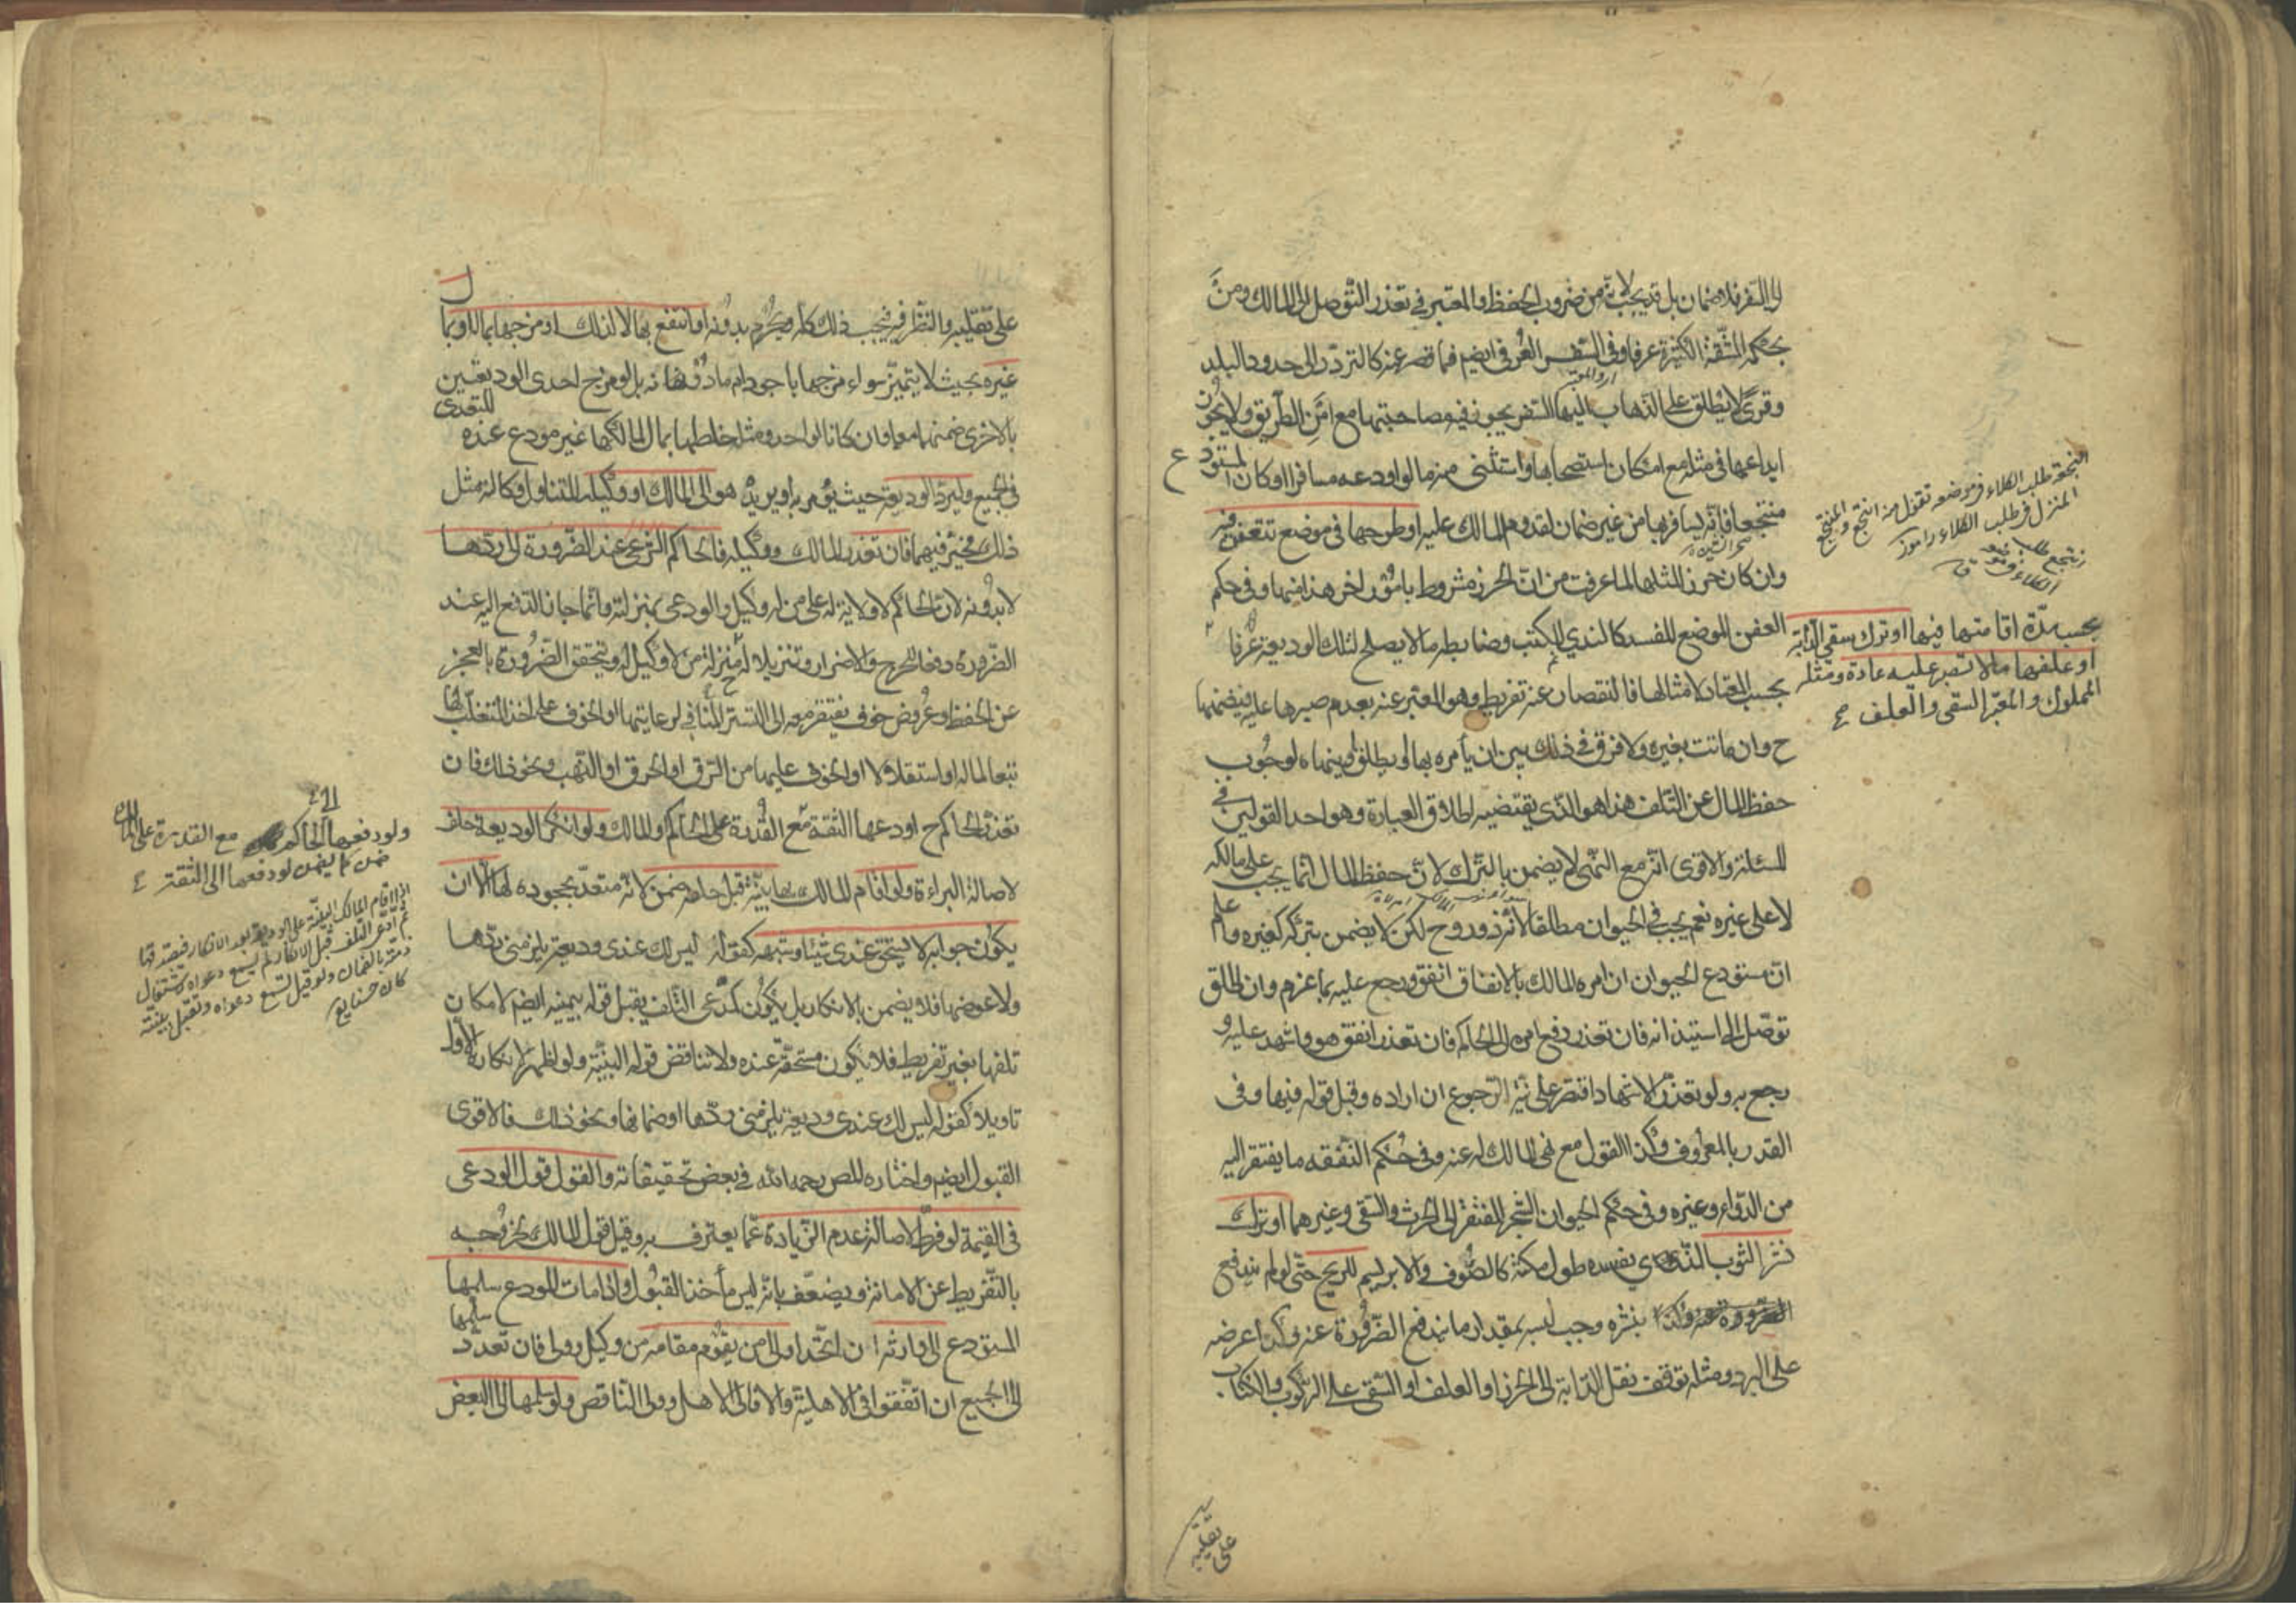 الى السفر فلا ضمان بل قد يجب لانه من ضروب الحفظ والمعتبر في تعذر التوصل الى المالك ومن
بحكمه المشقة الكثيرة عرفا وفي السفر العرفي ايضم فما قصر عنه كالتردد الى حدود البلد
وقرى لا يطلق على الذهاب اليها السفر يجوز فيه مصاحبتها مع امن الطريق ولا يجوز
ايداعها في مثله مع امكان استصحابها واستثنى منه ما لو اودعه مسافرا او كان المستودع
منتجعا فانه يسافر بها من غير ضمان لقدوم المالك عليه او طرحها في موضع تتعفن فيه
وان كان حرزا لمثلها لما عرفت من ان الحرز مشروط بامور اخر هذا منها وفي حكم
العفن الموضع المفسد كالندي للكتب وضابطه ما لا يصلح لتلك الوديعة عرفا
بحسب مدة اقامتها فيها او ترك سقي الدابة
او علفها ما لا تصبر عليه عادة ومثله
المملوك والمعتبر السقي والعلف
بحسب المعتاد لامثالها فالنقصان عنه تفريط وهو المعبر عنه بعدم صبرها عليه فيضمنها
ح وان ماتت بغيره ولا فرق في ذلك بين ان يأمره بهما او يطلق او ينهاه لوجوب
حفظ المال عن التلف هذا هو الذي يقتضيه اطلاق العبارة وهو احد القولين في
المسئلة والاقوى انه مع النهي لا يضمن بالترك لان حفظ المال انما يجب على مالكه
لا على غيره نعم يجب في الحيوان مطلقا لانه ذو روح لكن لا يضمن بتركه كغيره واعلم
ان مستودع الحيوان ان امره المالك بالانفاق انفق ورجع عليه بما غرم وان اطلق
توصل الى استيذانه فان تعذر رفع امره الى الحاكم فان تعذر انفق هو واشهد عليه و
رجع به ولو تعذر الاشهاد اقتصر على نية الرجوع ان اراده وقبل قوله فيها وفي
القدر بالمعروف وكذا القول مع نهي المالك له عنه وفي حكم النفقه ما يفتقر اليه
من الدواء وغيره وفي حكم الحيوان الشجر المفتقر الى الحرث والسقي وغيرهما او ترك
نشر الثوب الذي يفسده طول مكثه كالصوف والابريسم للريح حتى لو لم يندفع
بنشره وجب لبسه بمقدار ما يندفع الضرورة عنه وكذا عرضه
على البرد ومثله توقف نقل الدابة الى الحرز او العلف او السقي على الركوب والكتاب
على تقليبه
النجعة طلب الكلاء في موضعه تقول منه انتجع والمنتجع
المنزل في طلب الكلاء
على تقليبه والنظر فيه فيجب ذلك كله ويحرم بدونه او انتفع بها لا لذلك او مزجها بماله او بمال
غيره بحيث لا يتميز سواء مزجها باجود ام مادونها نه بل لو مزج احدى الوديعتين
بالاخرى ضمنهما معا وان كانا لواحد ومثله خلطها بمال لمالكها غير مودع عنده للتعدي
في الجميع وليرد الوديعة حيث يؤمر به او يريد هو الى المالك او وكيله المتناول وكالته مثل
ذلك مخير فيهما فان تعذر المالك ووكيله فالحاكم الشرعي عند الضرورة الى ردها
لا بدونه لان الحاكم لا ولاية له على من له وكيل والودعي بمنزلته وانما جاز الدفع اليه عند
الضرورة دفعا للحرج والاضرار وتنزيلا له ح منزلة من لا وكيل له ويتحقق الضرورة بالعجز
عن الحفظ وعروض خوف يفتقر معه الى التستر المنافي لرعايتها او الخوف على اخذ المتغلب لها
تبعا لماله او استقلالا او الخوف عليها من السرق او الحرق او النهب ونحو ذلك فان
تعذر الحاكم ح اودعها الثقة مع القدرة على الحاكم والمالك ولو انكر الوديعة حلف
لاصالة البراءة ولو اقام المالك بها بينة قبل حلفه ضمن لانه متعد بجحوده لها الا ان
يكون جوابه لا يستحق عندي شيئا وشبهه كقوله ليس لك عندي وديعة يلزمني ردها
ولا عوضها فلا يضمن بالانكار بل يكون كمدعي التلف يقبل قوله بيمينه ايضم لامكان
تلفها بغير تفريط فلا يكون مستحقة عنده ولا تناقض قوله البينة ولو اظهر لانكاره الاول
تاويلا كقوله ليس لك عندي وديعة يلزمني ردها او ضمانها ونحو ذلك فالاقوى
القبول ايضم واختاره المص رحمه الله في بعض تحقيقاته والقول قول الودعي
في القيمة لو فرط لاصالة عدم الزيادة عما يعترف به وقيل قول المالك لخروجه
بالتفريط عن الامانة ويضعف بانه ليس مأخذ القبول واذا مات المودع سلمها
المستودع الى وارثه ان اتحد او الى من يقوم مقامه من وكيل وولي فان تعدد سلمها
الى الجميع ان اتفقوا في الاهلية والا فالى الاهل وولي الناقص ولو سلمها الى البعض
ولو دفعها الى الحاكم مع القدرة على المالك
ضمن كما يضمن لو دفعها الى الثقة
اذا اقام المالك البينة على الوديعة بعد الانكار فصدقها
ثم ادعى التلف قبل الانكار لم تسمع دعواه لاشتغال
ذمته بالضمان ولو قيل تسمع دعواه وتقبل بينته
كان حسنا